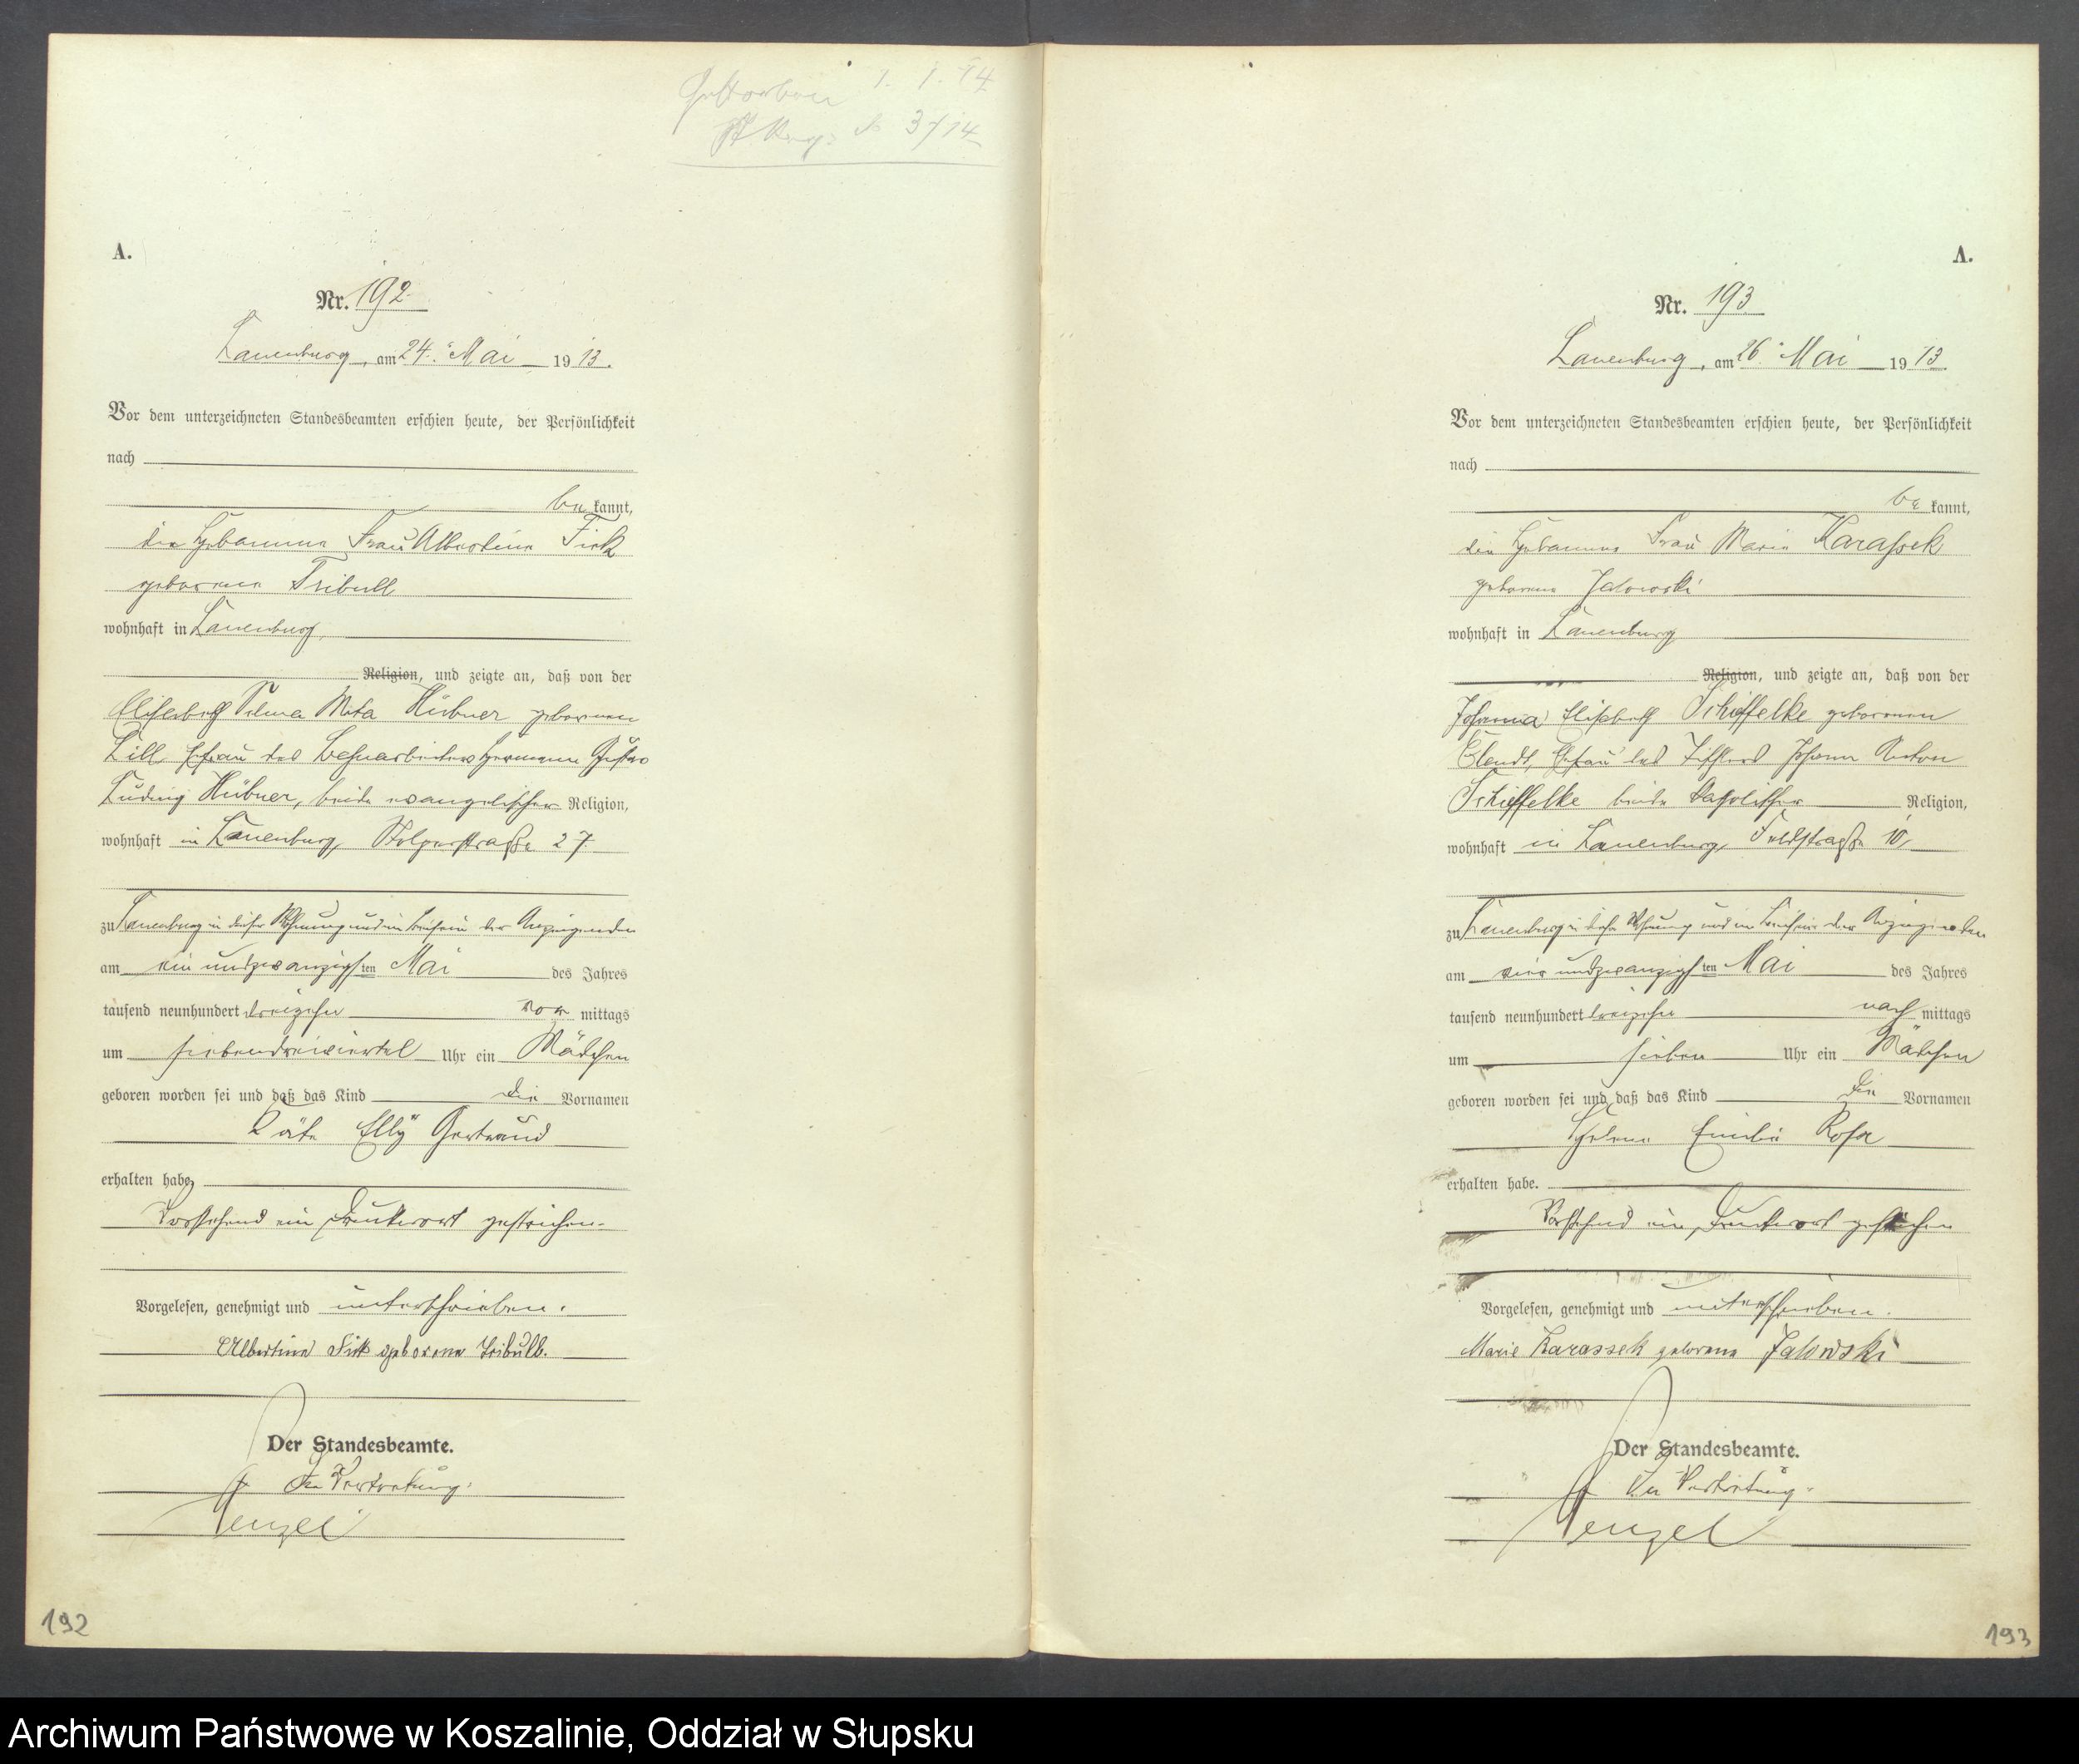 Gestorben 1. 1. 14
St. Reg. No 3/14
A.
Nr. 192
Lauenburg, am 24. Mai 1913.
Vor dem unterzeichneten Standesbeamten erschien heute, der Persönlichkeit
nach
be kannt,
die Hebamme Frau Albertine Fick
geborene Tribull
wohnhaft in Lauenburg,
Religion, und zeigte an, daß von der
Elisabeth Selma Meta Hübner geborenen
Lill Ehefrau des Bahnarbeiters Hermann Gustav
Ludwig Hübner, beide evangelischer Religion,
wohnhaft in Lauenburg, Stolperstraße 27
zu Lauenburg in dieser Wohnung und im Beisein der Anzeigenden
am ein und zwanzigsten Mai des Jahres
tausend neunhundert dreizehn vor mittags
um siebendreiviertel Uhr ein Mädchen
geboren worden sei und daß das Kind die Vornamen
Käte Elly Gertraud
erhalten habe
Vorstehend ein Druckwort gestrichen.
Vorgelesen, genehmigt und unterschrieben.
Albertine Fick geborene Tribull.
Der Standesbeamte.
In Vertretung:
Wenzel
192
A.
Nr. 193
Lauenburg, am 26. Mai 1913.
Vor dem unterzeichneten Standesbeamten erschien heute, der Persönlichkeit
nach
be kannt,
die Hebamme Frau Marie Karassek
geborene Jalowski
wohnhaft in Lauenburg
Religion, und zeigte an, daß von der
Johanna Elisabeth Schiffelke geborenen
Elendt, Ehefrau des Tischlers Johann Anton
Schiffelke beide katholischer Religion,
wohnhaft in Lauenburg, Feldstraße 10,
zu Lauenburg in dieser Wohnung und im Beisein der Anzeigenden
am vier und zwanzigsten Mai des Jahres
tausend neunhundert dreizehn nach mittags
um sieben Uhr ein Mädchen
geboren worden sei und daß das Kind die Vornamen
Helene Emilie Rosa
erhalten habe.
Vorstehend ein Druckwort gestrichen
Vorgelesen, genehmigt und unterschrieben.
Marie Karassek geborene Jalowski
Der Standesbeamte.
In Vertretung:
Wenzel
193
Archiwum Państwowe w Koszalinie, Oddział w Słupsku